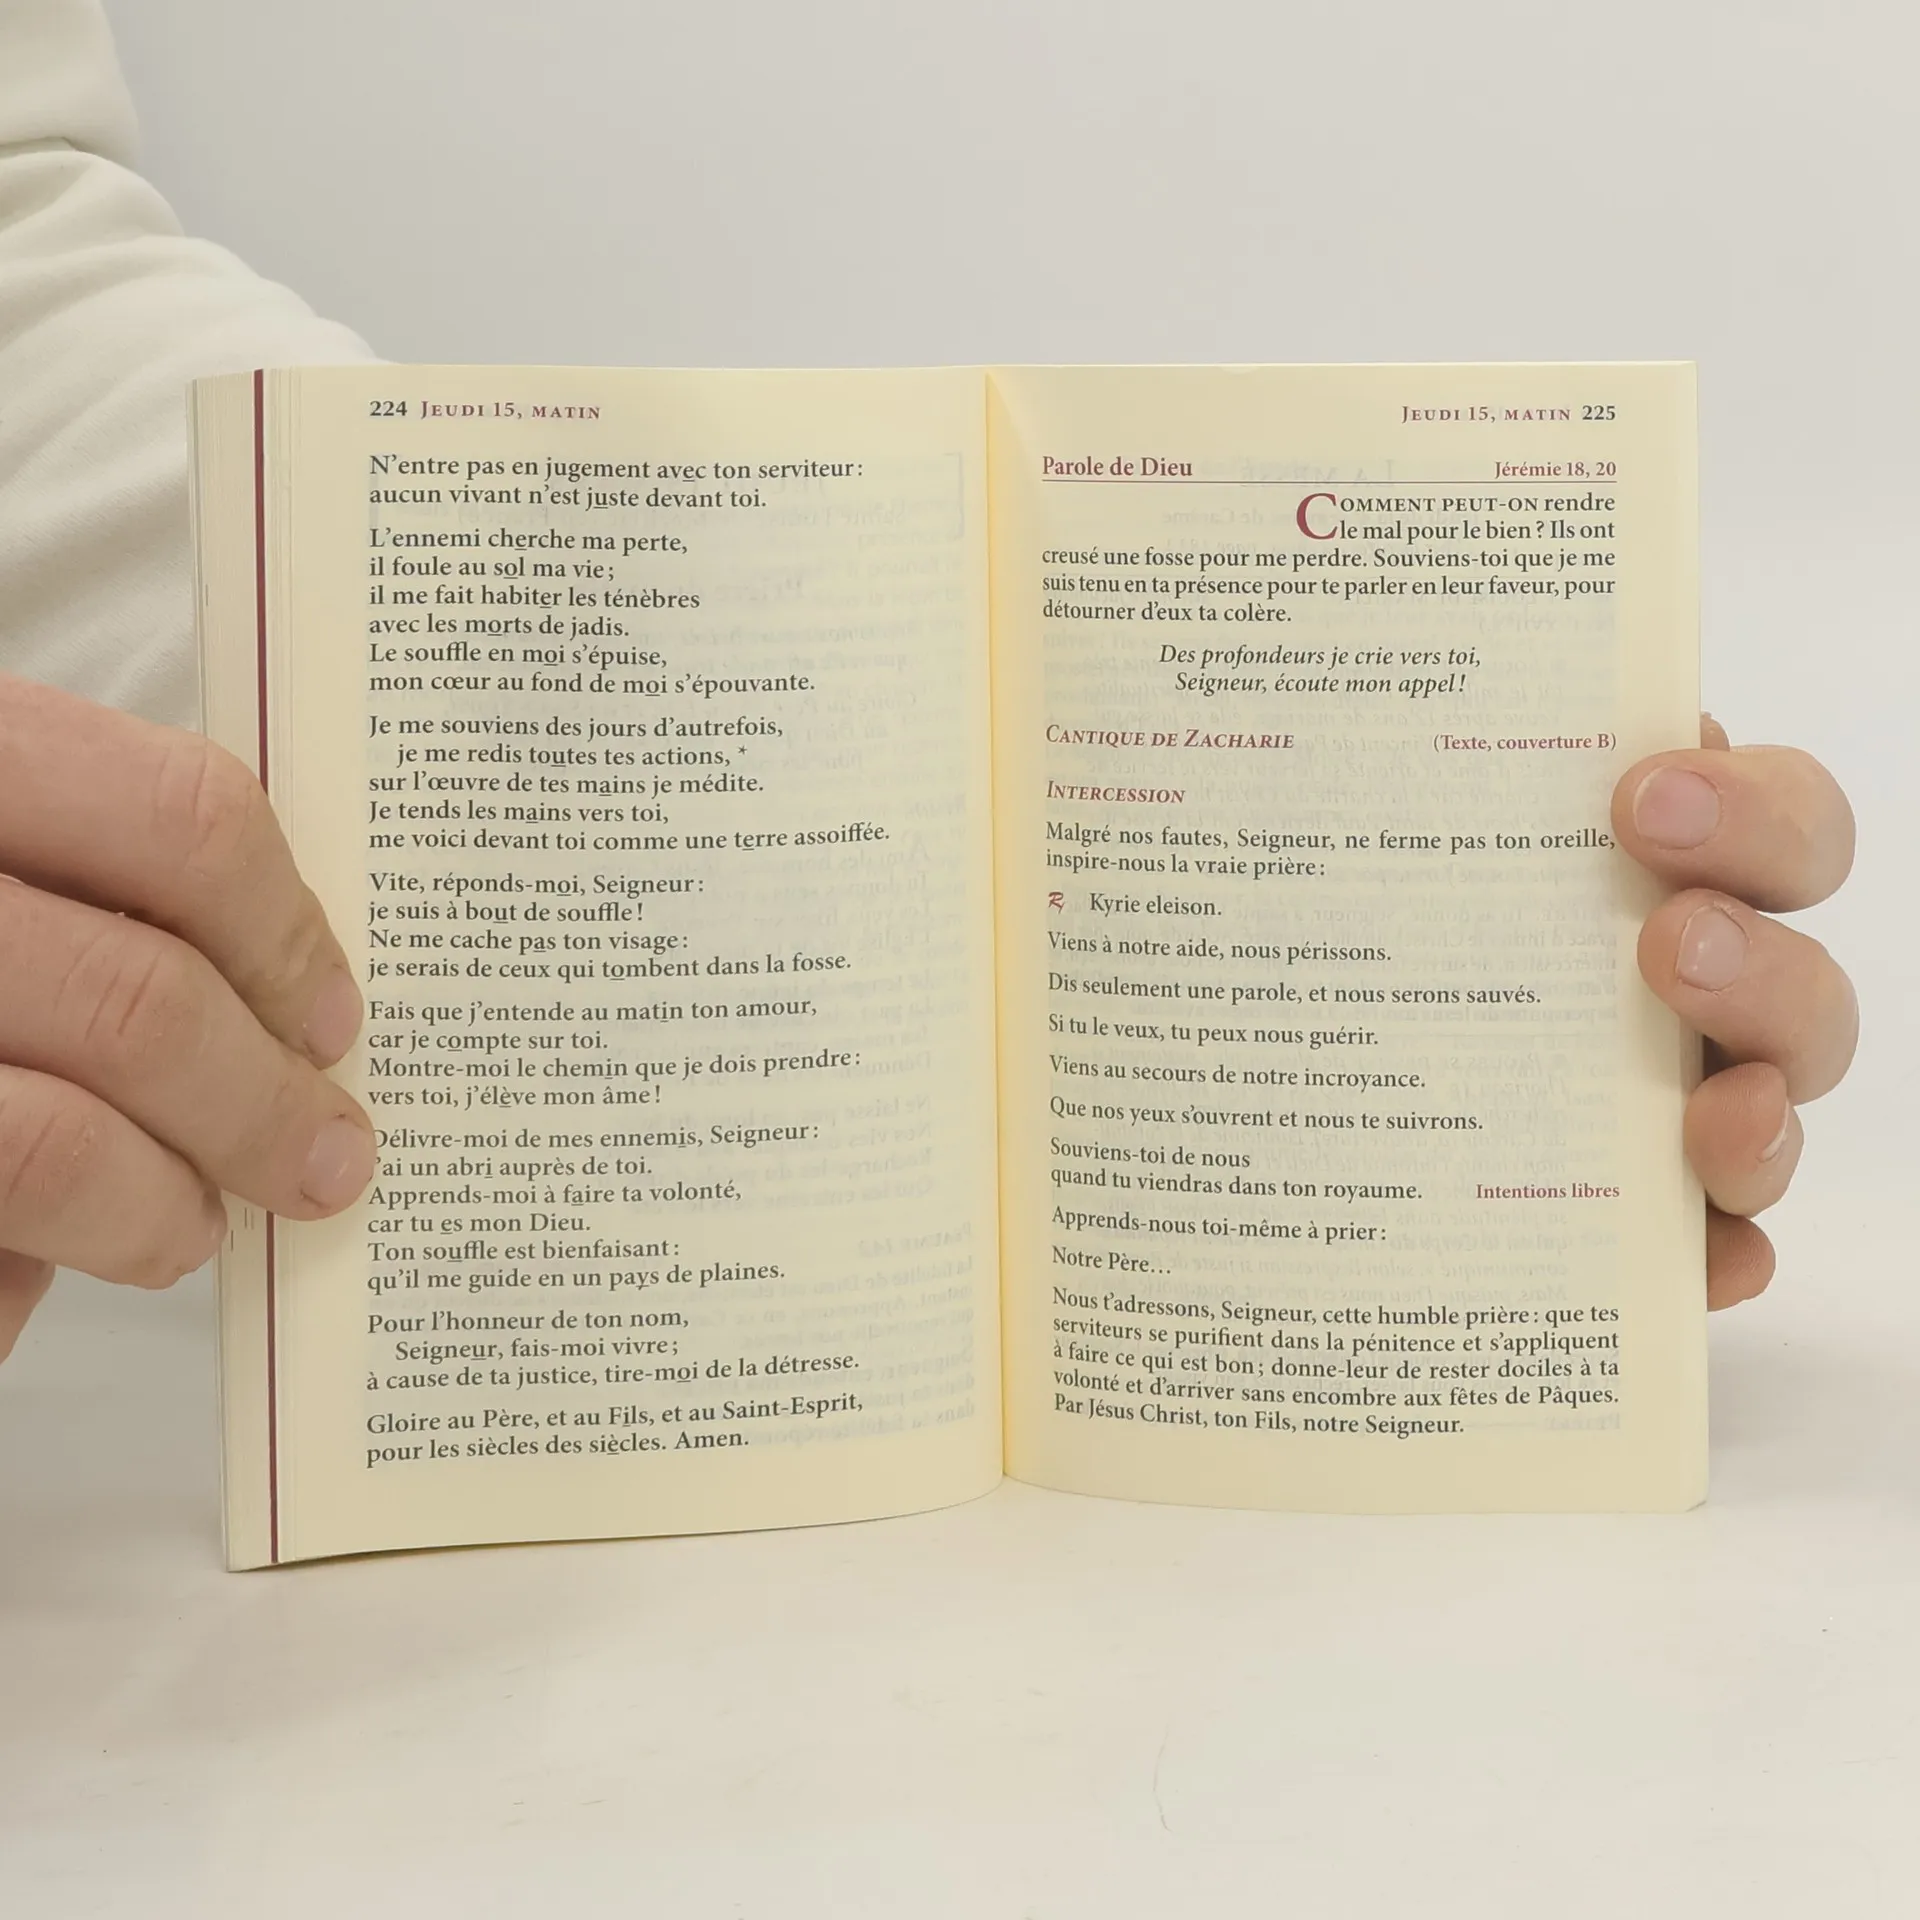 224 JEUDI 15, MATIN
N’entre pas en jugement avec ton serviteur :
aucun vivant n’est juste devant toi.
L’ennemi cherche ma perte,
il foule au sol ma vie ;
il me fait habiter les ténèbres
avec les morts de jadis.
Le souffle en moi s’épuise,
mon cœur au fond de moi s’épouvante.
Je me souviens des jours d’autrefois,
je me redis toutes tes actions, *
sur l’œuvre de tes mains je médite.
Je tends les mains vers toi,
me voici devant toi comme une terre assoiffée.
Vite, réponds-moi, Seigneur :
je suis à bout de souffle !
Ne me cache pas ton visage :
je serais de ceux qui tombent dans la fosse.
Fais que j’entende au matin ton amour,
car je compte sur toi.
Montre-moi le chemin que je dois prendre :
vers toi, j’élève mon âme !
Délivre-moi de mes ennemis, Seigneur :
j’ai un abri auprès de toi.
Apprends-moi à faire ta volonté,
car tu es mon Dieu.
Ton souffle est bienfaisant :
qu’il me guide en un pays de plaines.
Pour l’honneur de ton nom,
Seigneur, fais-moi vivre ;
à cause de ta justice, tire-moi de la détresse.
Gloire au Père, et au Fils, et au Saint-Esprit,
pour les siècles des siècles. Amen.
JEUDI 15, MATIN 225
Parole de Dieu Jérémie 18, 20
COMMENT PEUT-ON rendre
le mal pour le bien ? Ils ont
creusé une fosse pour me perdre. Souviens-toi que je me
suis tenu en ta présence pour te parler en leur faveur, pour
détourner d’eux ta colère.
Des profondeurs je crie vers toi,
Seigneur, écoute mon appel !
CANTIQUE DE ZACHARIE (Texte, couverture B)
INTERCESSION
Malgré nos fautes, Seigneur, ne ferme pas ton oreille,
inspire-nous la vraie prière :
℟ Kyrie eleison.
Viens à notre aide, nous périssons.
Dis seulement une parole, et nous serons sauvés.
Si tu le veux, tu peux nous guérir.
Viens au secours de notre incroyance.
Que nos yeux s’ouvrent et nous te suivrons.
Souviens-toi de nous
quand tu viendras dans ton royaume. Intentions libres
Apprends-nous toi-même à prier :
Notre Père…
Nous t’adressons, Seigneur, cette humble prière : que tes
serviteurs se purifient dans la pénitence et s’appliquent
à faire ce qui est bon ; donne-leur de rester dociles à ta
volonté et d’arriver sans encombre aux fêtes de Pâques.
Par Jésus Christ, ton Fils, notre Seigneur.